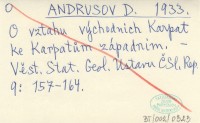 ANDRUSOV D. 1933.
O vztahu východních Karpat
ke Karpatám západním. —
Věst. Stát. Geol. Ústavu ČSl. Rep.
9: 157-164.